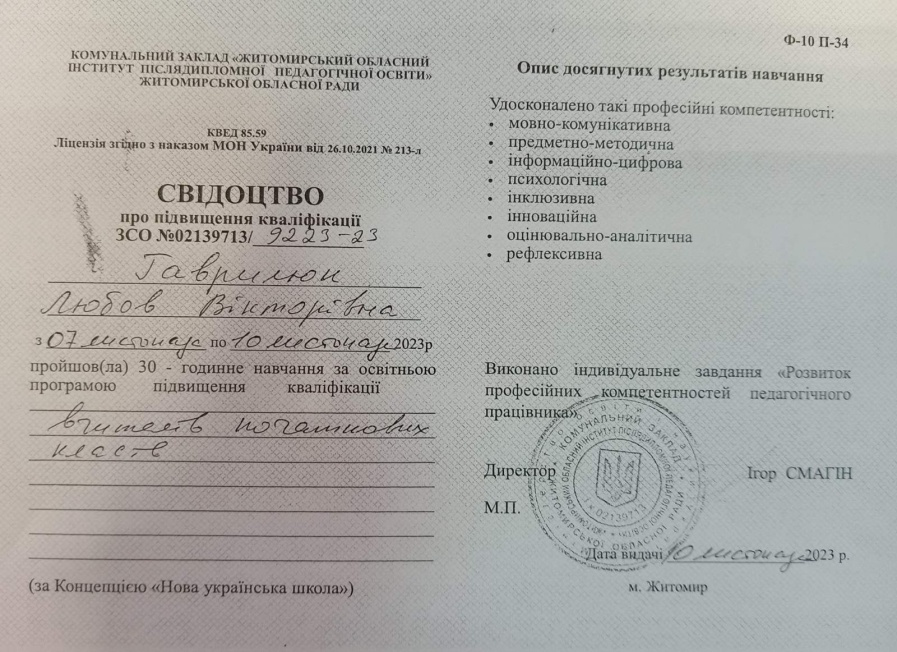 КОМУНАЛЬНИЙ ЗАКЛАД «ЖИТОМИРСЬКИЙ ОБЛАСНИЙ
ІНСТИТУТ ПІСЛЯДИПЛОМНОЇ ПЕДАГОГІЧНОЇ ОСВІТИ»
ЖИТОМИРСЬКОЇ ОБЛАСНОЇ РАДИ
КВЕД 85.59
Ліцензія згідно з наказом МОН України від 26.10.2021 № 213-л
СВІДОЦТВО
про підвищення кваліфікації
ЗСО №02139713/ 9223-23
Гаврилюк
Любов Вікторівна
з 07 листопада по 10 листопада 2023р
пройшов(ла) 30 - годинне навчання за освітньою
програмою підвищення кваліфікації
вчителів початкових
класів
(за Концепцією «Нова українська школа»)
Ф-10 П-34
Опис досягнутих результатів навчання
Удосконалено такі професійні компетентності:
• мовно-комунікативна
• предметно-методична
• інформаційно-цифрова
• психологічна
• інклюзивна
• інноваційна
• оцінювально-аналітична
• рефлексивна
Виконано індивідуальне завдання «Розвиток
професійних компетентностей педагогічного
працівника»
Директор Ігор СМАГІН
М.П.
КОМУНАЛЬНИЙ ЗАКЛАД
ЖИТОМИРСЬКОЇ ОБЛАСНОЇ РАДИ
02139713
Дата видачі 10 листопада 2023 р.
м. Житомир